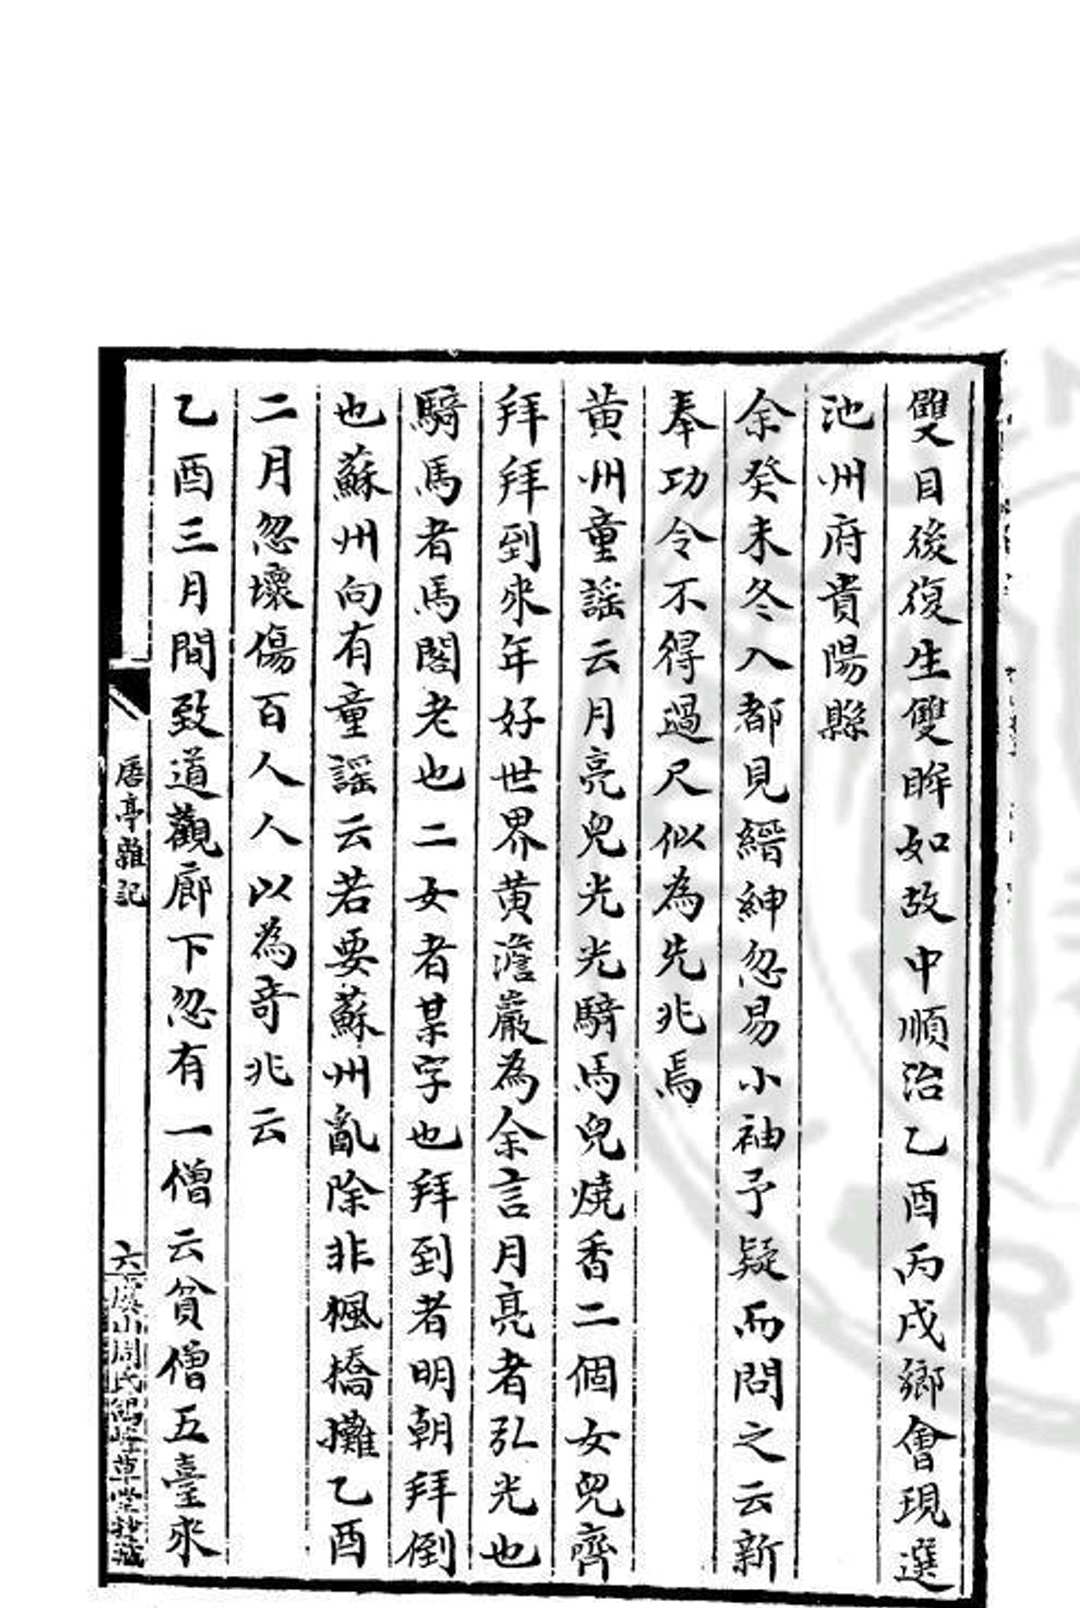 雙目後復生雙眸如故中順治乙酉丙戌鄉會現選
池州府貴陽縣
余癸未冬入都見縉紳忽易小袖予疑而問之云新
奉功令不得過尺似為先兆焉
黃州童謠云月亮兒光光騎馬兒燒香二個女兒齊
拜拜到來年好世界黃澹巖為余言月亮者弘光也
騎馬者馬閣老也二女者某字也拜到者明朝拜倒
也蘇州向有童謠云若要蘇州亂除非楓橋攤乙酉
二月忽壞傷百人人以為奇兆云
乙酉三月間致道觀廊下忽有一僧云貧僧五臺來
𢈪亭雜記
六
虞山周氏鴿峰草堂鈔藏